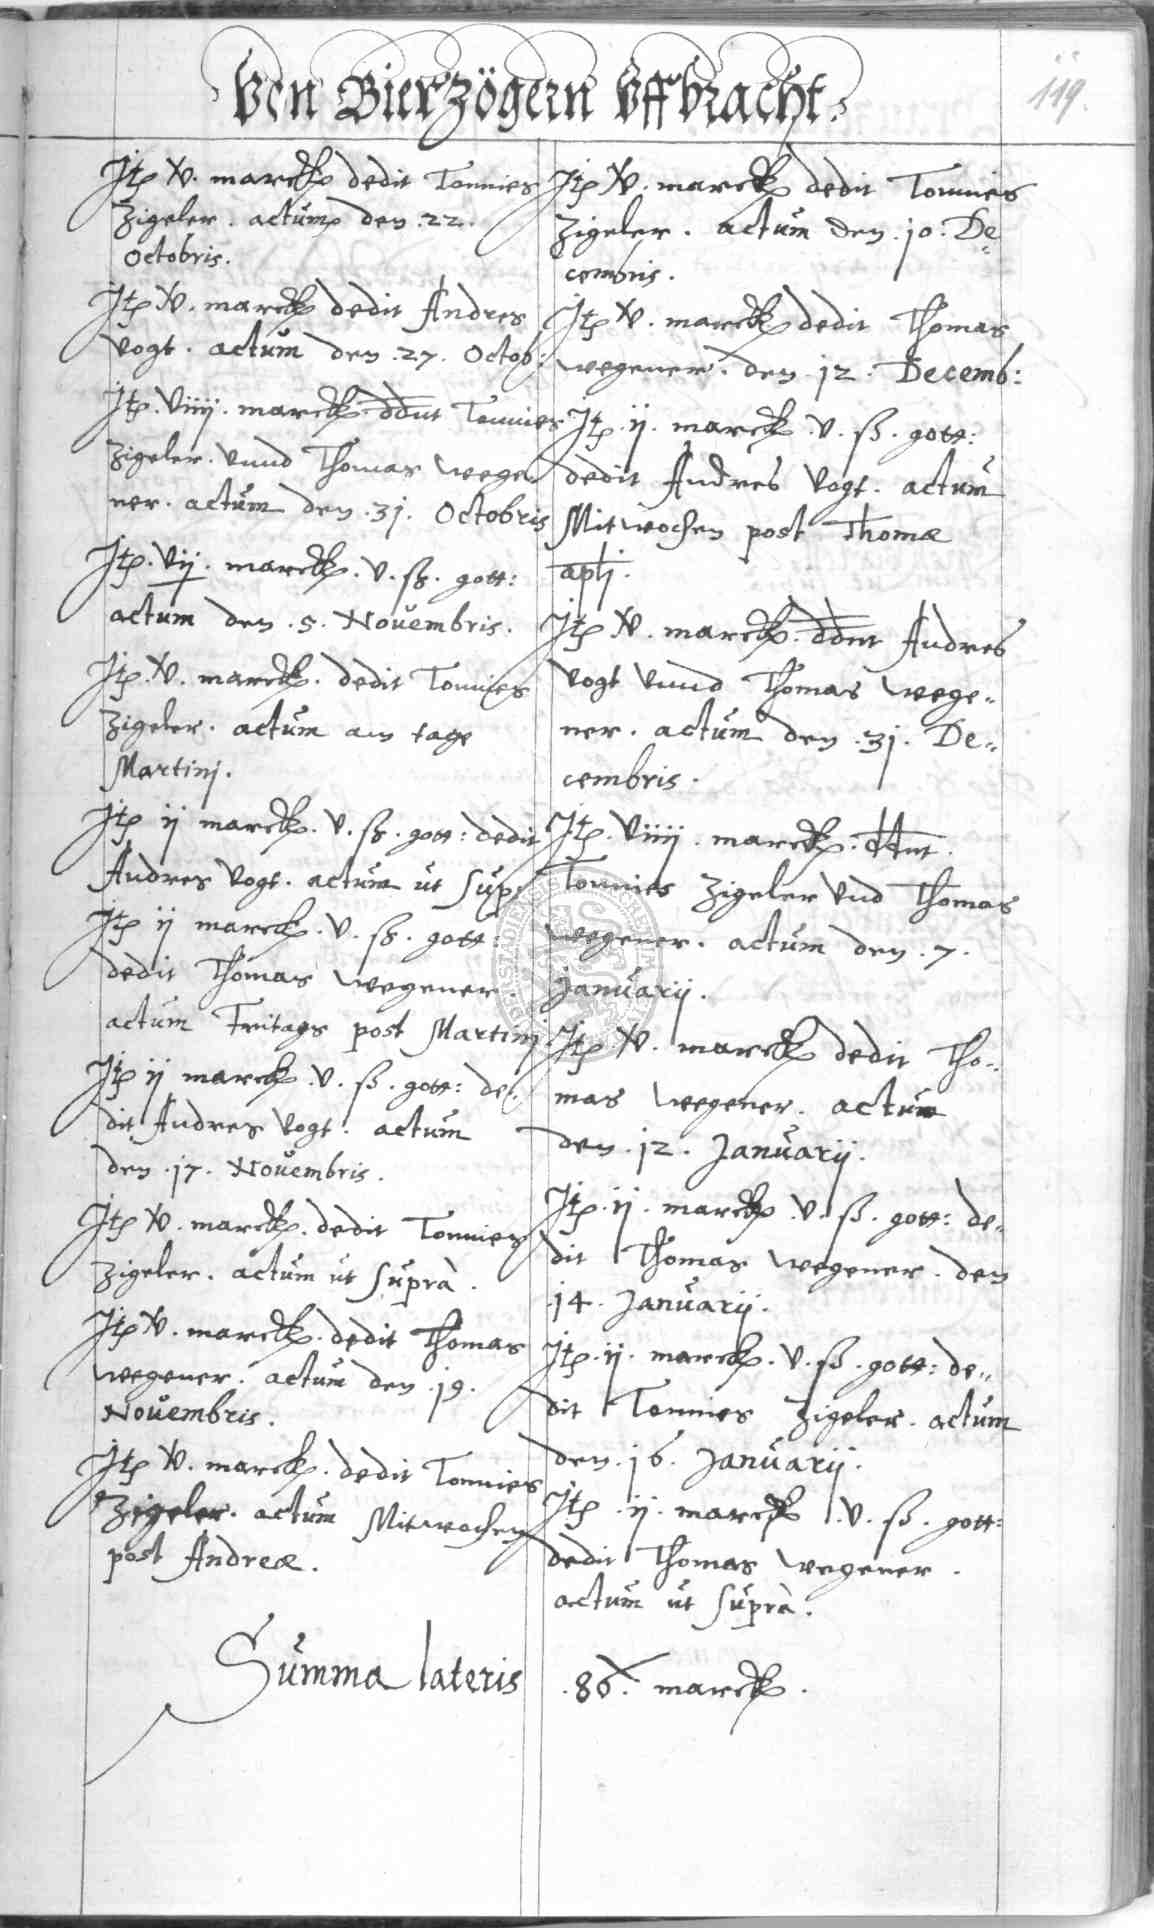 Von Bierzögern Vffbracht.
119.
Itp V. marck dedit Tonnies
Zigeler. actum den .22.
Octobris.
Itp V. marck dedit Andres
Vogt. actum den .27. Octob:
Itp. Viiij. marck ddnt Tonnies
Zigeler. Vnnd Thomas Wege
ner. actum den .31. Octobris
Itp. Vij. marck. V. ß. gott:
actum den .5. Novembris.
Itp. V. marck. dedit Tonnies
Zigeler. actum am tage
Martinj.
Itp ij marck. V. ß. gott: dedit
Andres Vogt. actum ut Sup:
Itp ij marck. V. ß. gott:
dedit Thomas Wegener.
actum Fritags post Martinj
Itp ij marck. V. ß. gott: de-
dit Andres Vogt. actum
den .17. Novembris.
Itp V. marck. dedit Tonnies
Zigeler. actum ut Suprà.
Itp V. marck. dedit Thomas
Wegener. actum den .19.
Novembris.
Itp V. marck. dedit Tonnies
Zigeler. actum Mitwochen
post Andreæ.
Itp V. marck dedit Tonnies
Zigeler. actum den .10. De-
cembris.
Itp V. marck dedit Thomas
Wegener. den .12. Decemb:
Itp .ij. marck .V. ß. gott:
dedit Andres Vogt. actum
Mitwochen post Thomæ
aplj.
Itp V. marck. ddnt Andres
Vogt Vnnd Thomas Wege-
ner. actum den .31. De-
cembris.
Itp. Viiij. marck. ddnt.
Tonnies Zigeler Vnd Thomas
Wegener. actum den .7.
Januarij.
Itp. V. marck dedit Tho-
mas Wegener. actum
den .12. Januarij.
Itp .ij. marck .V. ß. gott: de-
dit Thomas Wegener. den
.14. Januarij.
Itp .ij. marck. V. ß. gott: de-
dit Tonnies Zigeler. actum
den .16. Januarij.
Itp .ij. marck .V. ß. gott:
dedit Thomas Wegener.
actum ut Suprà.
Summa lateris .86. marck.